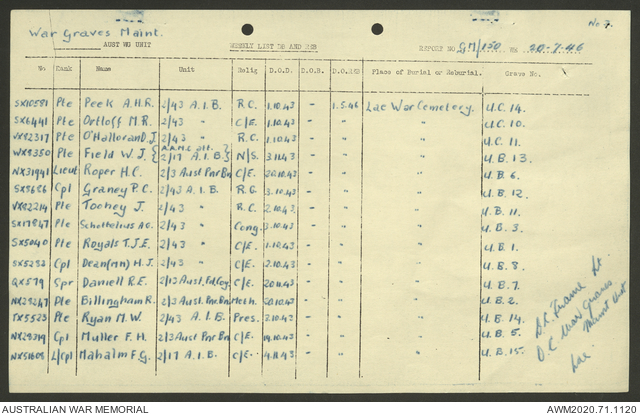 No 7.
War Graves Maint.
AUST WG UNIT WEEKLY LIST DB AND RES REPORT NO GM/150 WE 20-7-46
No Rank Name Unit Relig D.O.D. D.O.B. D.O.RES Place of Burial or Reburial. Grave No.
SX10581 Pte Peek A.H.R. 2/43 A.I.B. R.C. 1.10.43 - 1.5.46 Lae War Cemetery. U.C. 14.
SX6441 Pte Ortloff M.R. 2/43 " C/E. 1.10.43 - " " U.C. 10.
VX82317 Pte O'Halloran D.J. 2/43 " R.C. 1.10.43 - " " U.C. 11.
WX9350 Pte Field W.J. { A.A.M.C. att. 2/17 A.I.B. } N/S. 3.11.43 - " " U.B. 13.
NX31991 Lieut Roper H.C. 2/3 Aust Pnr Bn C/E. 20.10.43 - " " U.B. 6.
SX5686 Cpl Graney P.C. 2/43 A.I.B. R.C. 3.10.43 - " " U.B. 12.
VX82214 Pte Toohey J. 2/43 " R.C. 2.10.43 - " " U.B. 11.
SX17847 Pte Schottelius A.G. 2/43 " Cong. 3.10.43 - " " U.B. 3.
SX5040 Pte Royals T.J.E. 2/43 " C/E. 2.10.43 - " " U.B. 1.
SX5292 Cpl Dean (Mn) H.J. 2/43 " C/E. 2.10.43 - " " U.B. 8.
QX579 Spr Daniell R.E. 2/13 Aust. Fd. Coy C/E. 20.11.43 - " " U.B. 7.
NX29247 Pte Billingham R. 2/3 Aust. Pnr. Bn Meth. 20.10.43 - " " U.B. 2.
TX5523 Pte Ryan M.W. 2/43 A.I.B. Pres. 2.10.43 - " " U.B. 14.
NX29319 Cpl Muller F.H. 2/3 Aust Pnr Bn C/E. 19.10.43 - " " U.B. 5.
NX51609 L/Cpl Mahalm F.G. 2/17 A.I.B. C/E. 4.11.43 - " " U.B. 15.
Lt.
O.C. War Graves
Maint Unit
Lae.
AUSTRALIAN WAR MEMORIAL AWM2020.71.1120